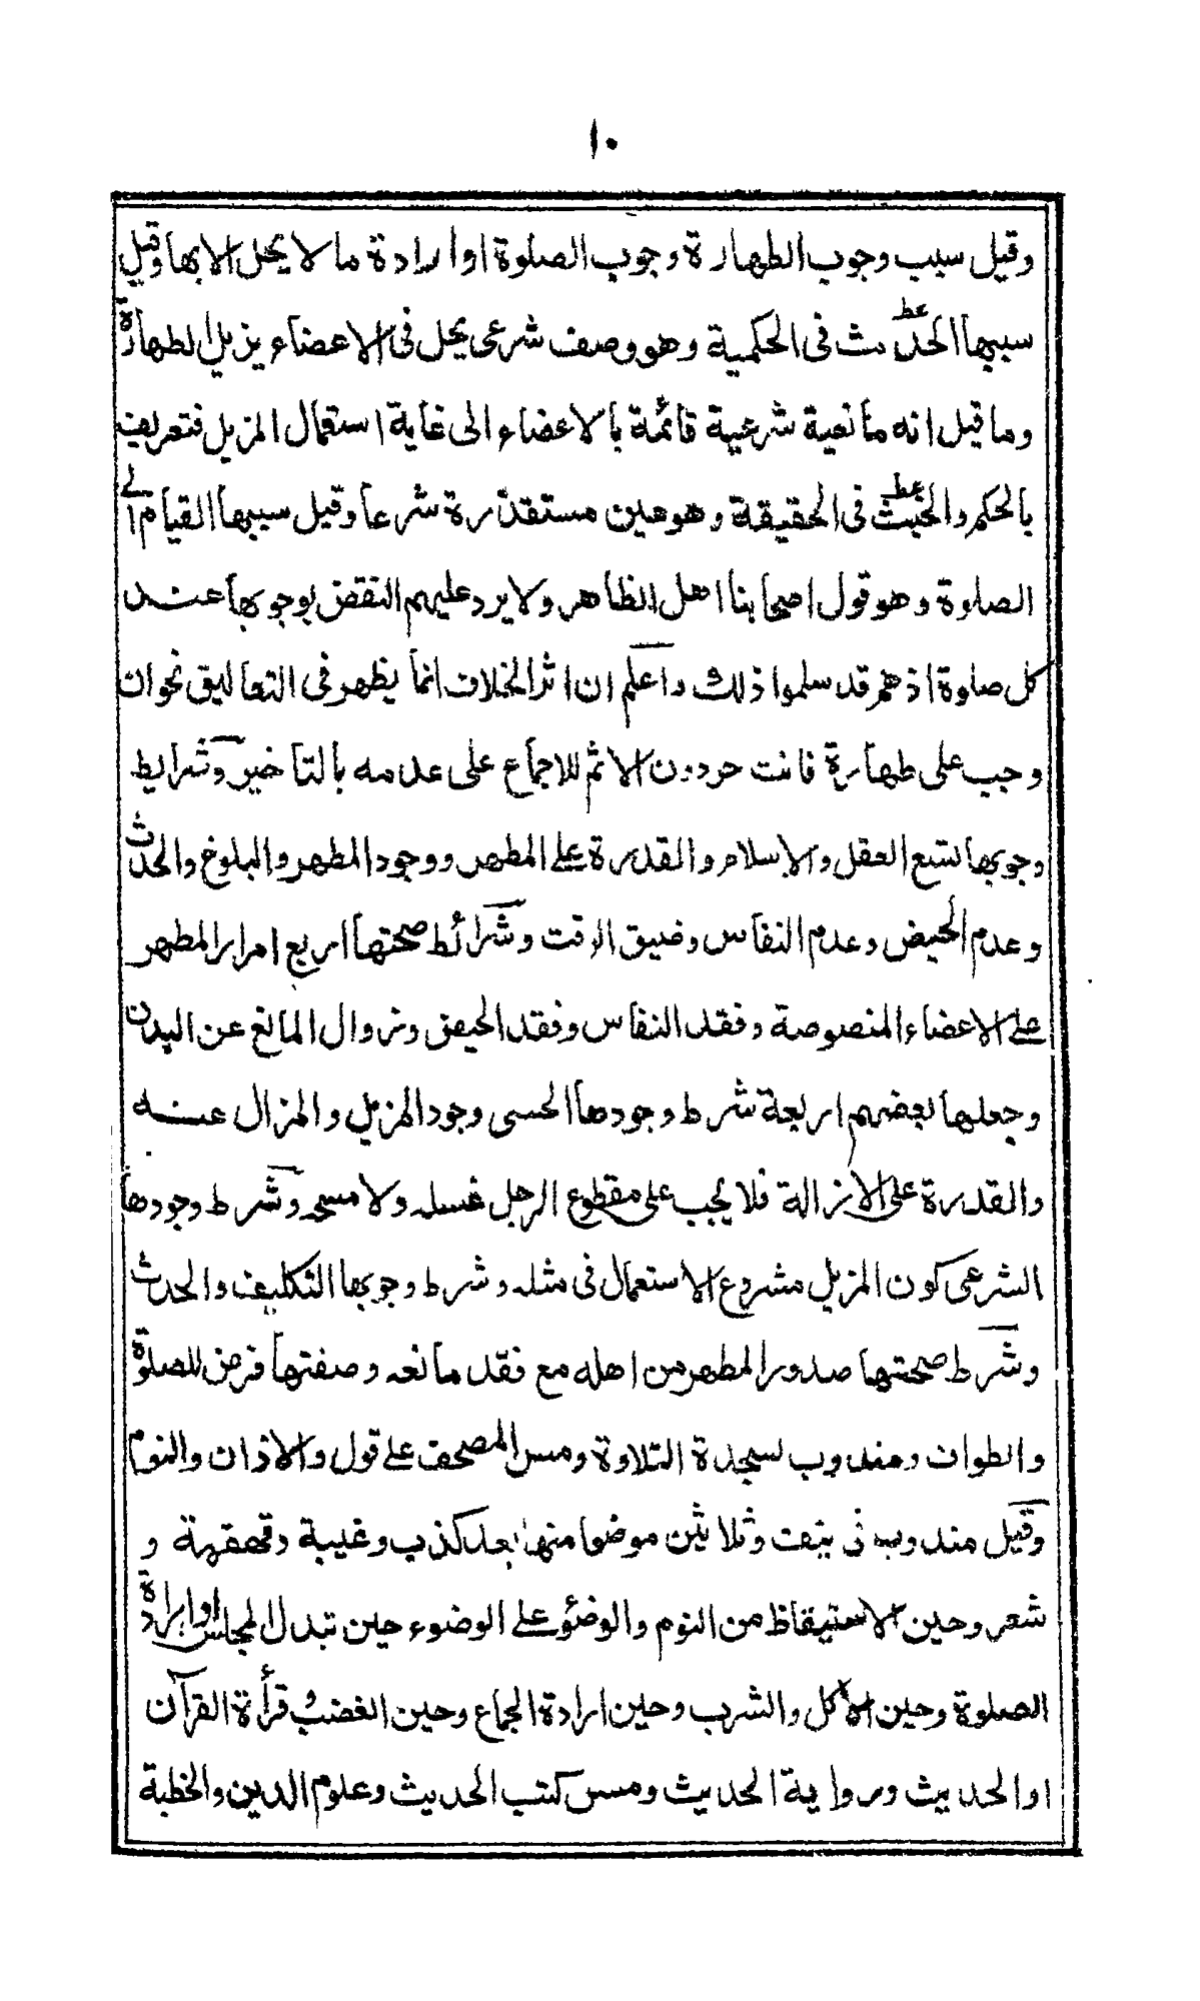 ١٠
وقيل سبب وجوب الطهارة وجوب الصلوة او ارادة ما لا يحل الا بها وقيل
سببها الحدث فى الحكمية وهو وصف شرعى يحل فى الاعضاء يزيل الطهارة
وما قيل انه مانعية شرعية قائمة بالاعضاء الى غاية استعمال المزيل فتعريف
بالحكم والخبث فى الحقيقة وهو عين مستقذرة شرعا وقيل سببها القيام الى
الصلوة وهو قول اصحابنا اهل الظاهر ولا يرد عليهم النقض بوجوبها عند
كل صلوة اذ هم قد سلموا ذلك واعلم ان اثر الخلاف انما يظهر فى التعاليق نحو ان
وجب على طهارة فانت حر دون الاثم للاجماع على عدمه بالتاخير وشرايط
وجوبها تسع العقل والاسلام والقدرة على المطهر ووجود المطهر والبلوغ والحدث
وعدم الحيض وعدم النفاس وضيق الوقت وشرائط صحتها اربع امرار المطهر
على الاعضاء المنصوصة وفقد النفاس وفقد الحيض وزوال المانع عن البدن
وجعلها بعضهم اربعة شرط وجودها الحسى وجود المزيل والمزال عنه
والقدرة على الازالة فلا يجب على مقطوع الرجل غسله ولا مسحه وشرط وجودها
الشرعى كون المزيل مشروع الاستعمال فى مثله وشرط وجوبها التكليف والحدث
وشرط صحتها صدور المطهر من اهله مع فقد مانعه وصفتها فرض للصلوة
والطواف ومندوب لسجدة التلاوة ومس المصحف على قول والاذان والنوم
وقيل مندوب فى نيف وثلاثين موضعا منها بعد كذب وغيبة وقهقهة و
شعر وحين الاستيقاظ من النوم والوضوء على الوضوء حين تبدل المجلس او ارادة
الصلوة وحين الاكل والشرب وحين ارادة الجماع وحين الغضب قرأة القرآن
او الحديث ورواية الحديث ومس كتب الحديث وعلوم الدين والخطبة